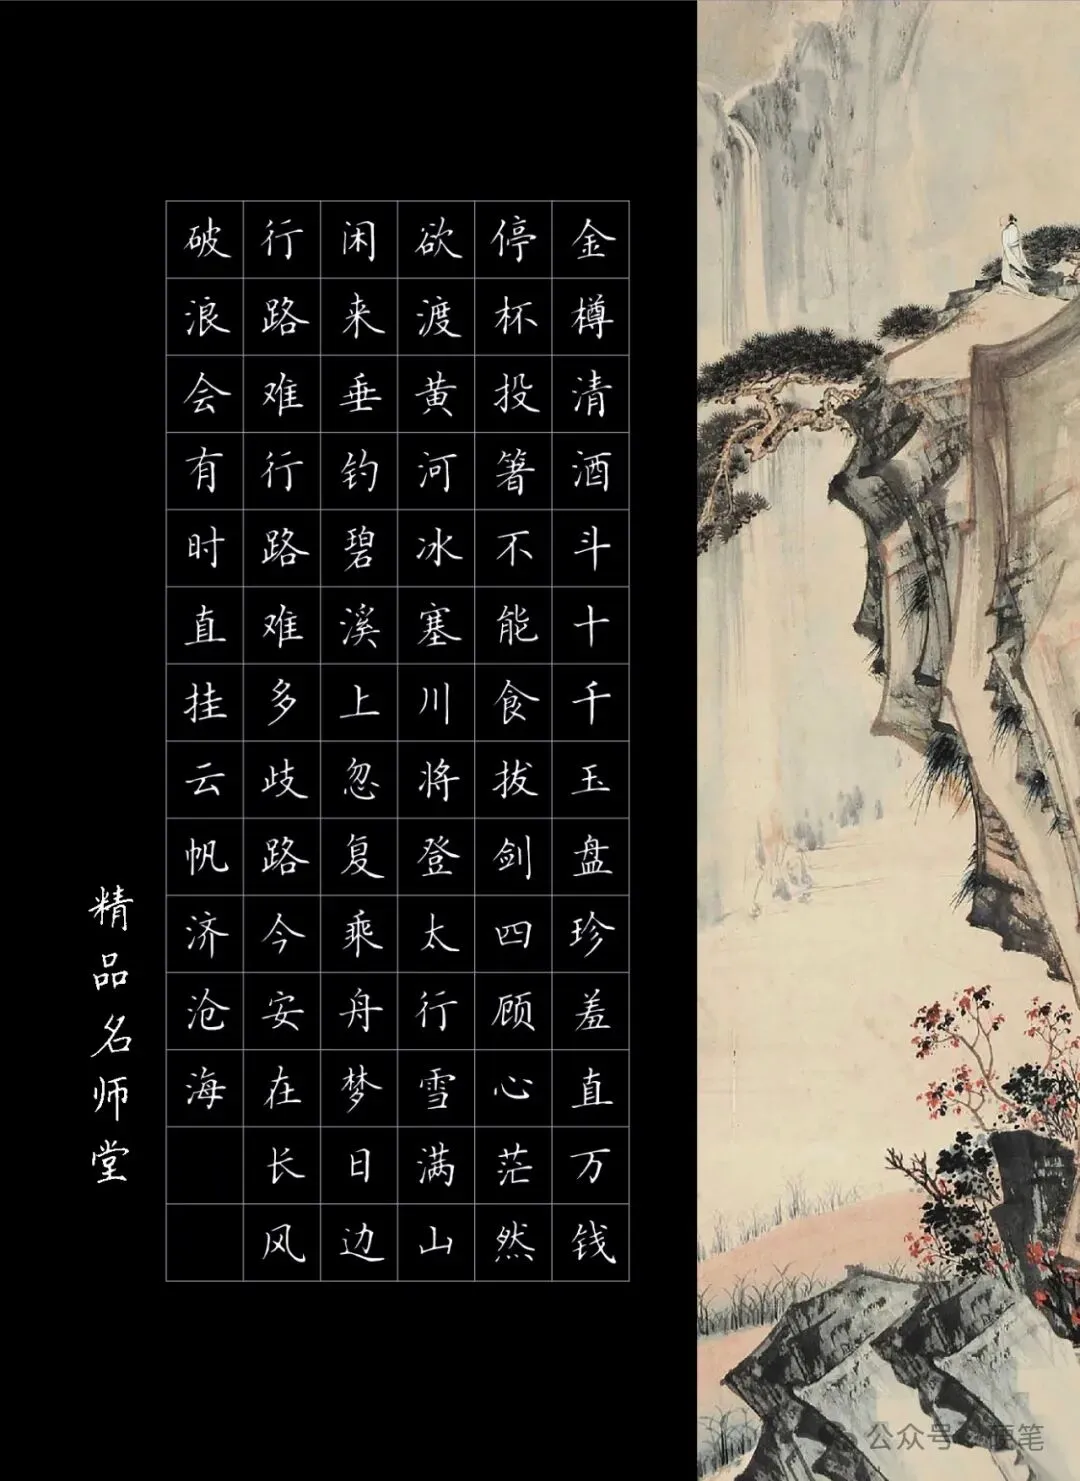 金樽清酒斗十千玉盘珍羞直万钱
停杯投箸不能食拔剑四顾心茫然
欲渡黄河冰塞川将登太行雪满山
闲来垂钓碧溪上忽复乘舟梦日边
行路难行路难多歧路今安在长风
破浪会有时直挂云帆济沧海
精品名师堂
公众号
笔